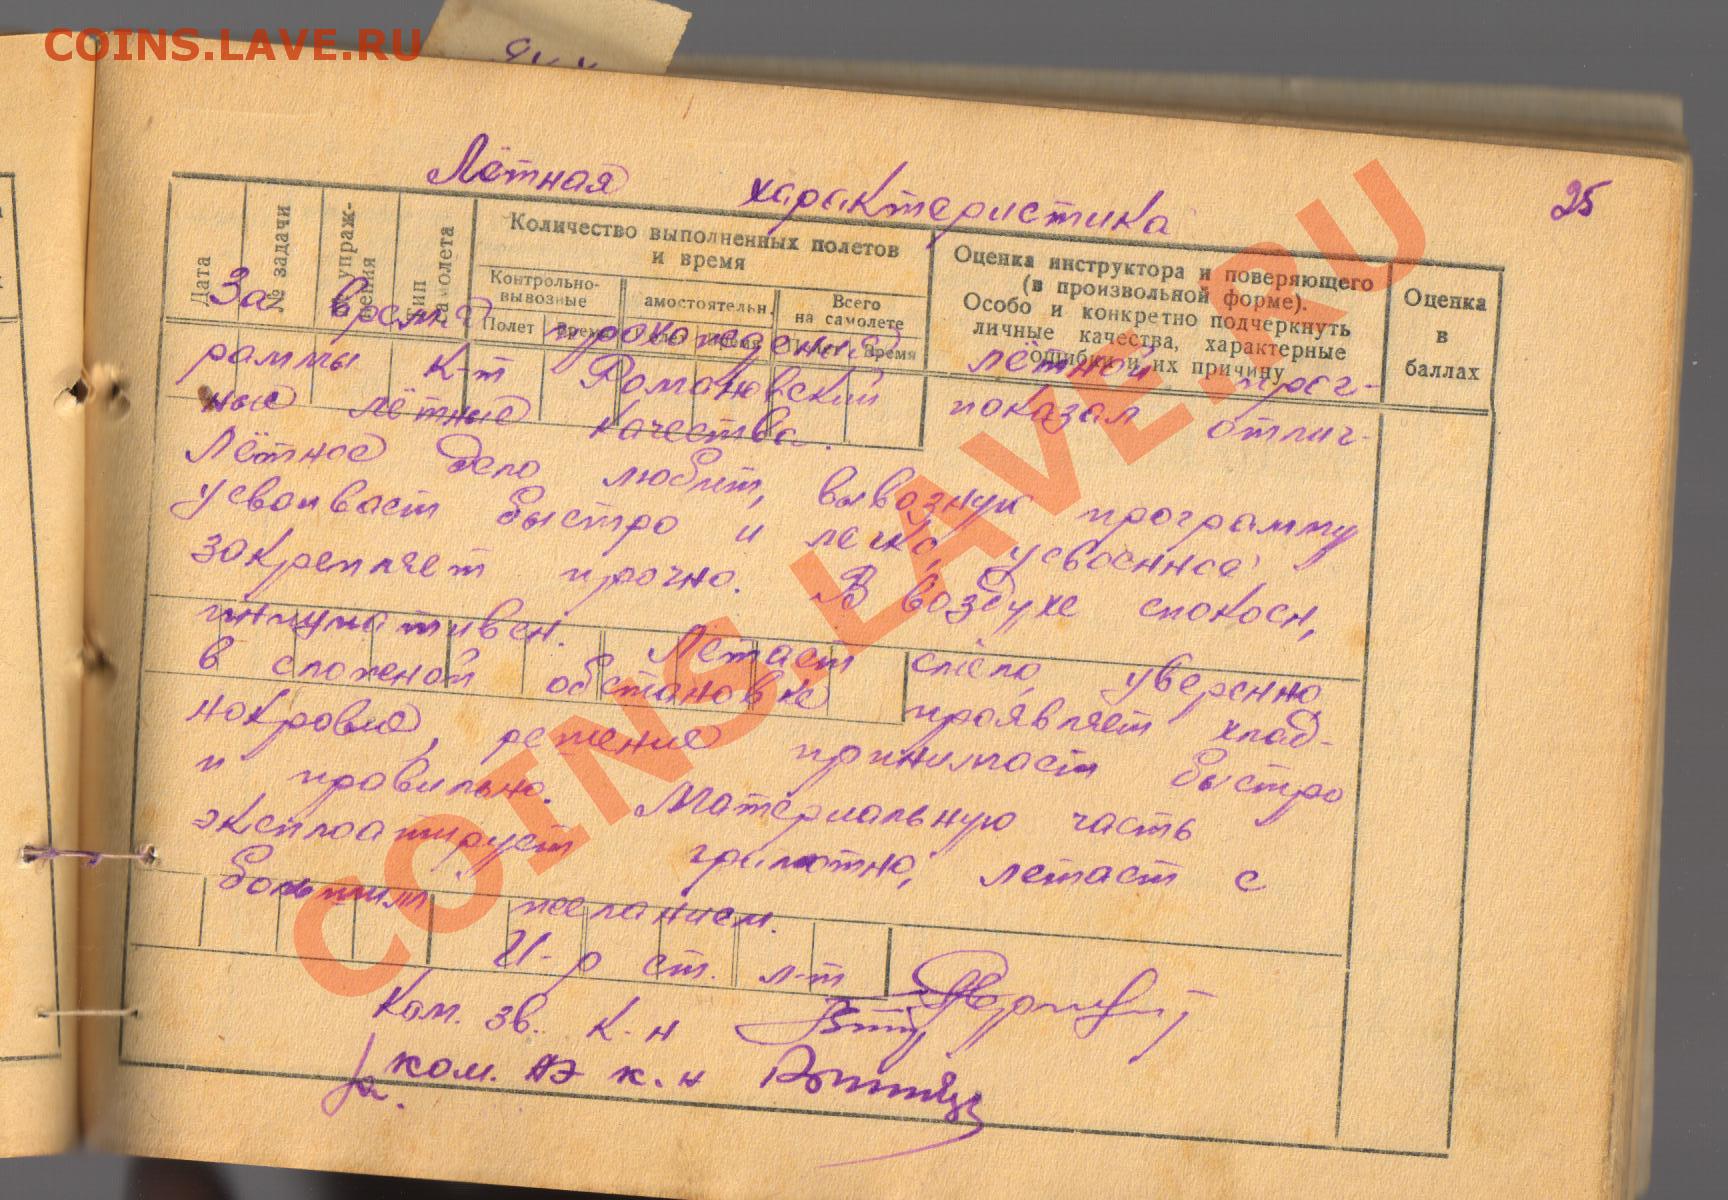 COINS.LAVE.RU
Лётная характеристика
25
Дата
№ задачи
упраж-
нения
тип
самолета
Количество выполненных полетов
и время
Контрольно-
вывозные
Полет
Время
амостоятельн.
Время
Всего
на самолете
Время
Оценка инструктора и поверяющего
(в произвольной форме).
Особо и конкретно подчеркнуть
личные качества, характерные
ошибки и их причину
Оценка
в
баллах
За время прохождения лётной прог-
раммы к-т Романовский показал отлич-
ные лётные качества.
Лётное дело любит, вывозную программу
усваивает быстро и легко, усвоенное,
закрепляет прочно. В воздухе спокоен,
инициативен. Летает смело, уверенно
в сложной обстановке проявляет хлад-
нокровие, решение принимает быстро
и правильно. Материальную часть
эксплоатирует грамотно, летает с
большим желанием.
И-р ст. л-т
Ком. зв. к-н
за. ком. АЭ к-н
COINS.LAVE.RU